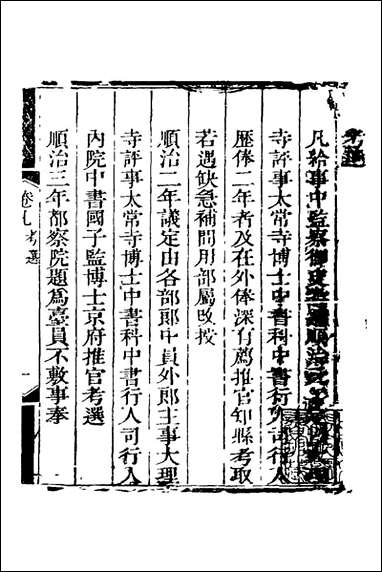 考選
凡給事中監察御史員順治元年
寺評事太常寺博士中書科中書行人司行人
歷俸二年者及在外俸深有薦推官知縣考取
若遇缺急補間用部屬改授
順治二年議定由各部郎中員外郎主事大理
寺評事太常寺博士中書科中書行人司行人
內院中書國子監博士京府推官考選
順治三年都察院題爲臺員不敷事奉
卷七 考選
一